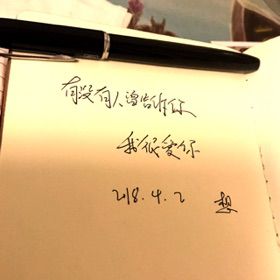 有没有人曾告诉你
我很爱你
2018.4.2 想